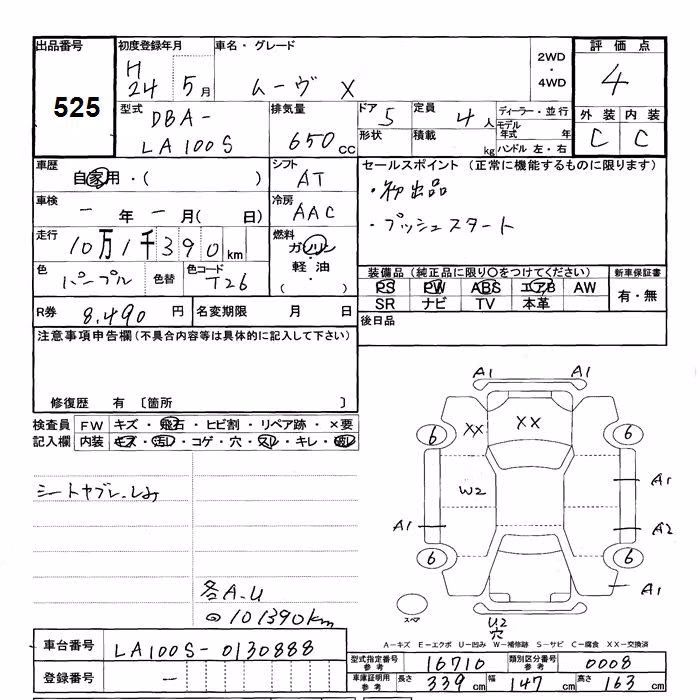 出品番号 初度登録年月 車名・グレード 2WD ・ 4WD 評価点
525 H24 5月 ムーヴ X 4
型式 DBA-LA100S 排気量 650cc ドア 5 定員 4人 ディーラー・並行 外装 内装
形状 積載 kg モデル年式 年 ハンドル 左・右 C C
車歴 自家用・( ) シフト AT セールスポイント (正常に機能するものに限ります)
車検 一年一月( 日) 冷房 AAC ・初出品
走行 10万1千390km 燃料 ガソリン・軽油 ( ) ・プッシュスタート
色 パープル 色替 色コード T26 装備品 (純正品に限り〇をつけてください) 新車保証書
PS PW ABS エアB AW 有・無
SR ナビ TV 本革
R券 8.490円 名変期限 月 日 後日品
注意事項申告欄 (不具合内容等は具体的に記入して下さい)
修復歴 有 〔箇所 〕
検査員 FW キズ・飛石・ヒビ割・リペア跡・×要
記入欄 内装 キズ・汚レ・コゲ・穴・スレ・キレ・破レ
シートヤブレ.しみ
各A.U
@101390km
A1 A1
XX XX
6 6
W2 A1
A1 A2
6 6
A1
スペア U2 穴
A-キズ E-エクボ U-凹み W-補修跡 S-サビ C-腐食 XX-交換済
車台番号 LA100S-0130888
登録番号 -
型式指定番号 参考 16710 類別区分番号 参考 0008
車庫証明用 参考 長さ 339cm 幅 147cm 高さ 163cm